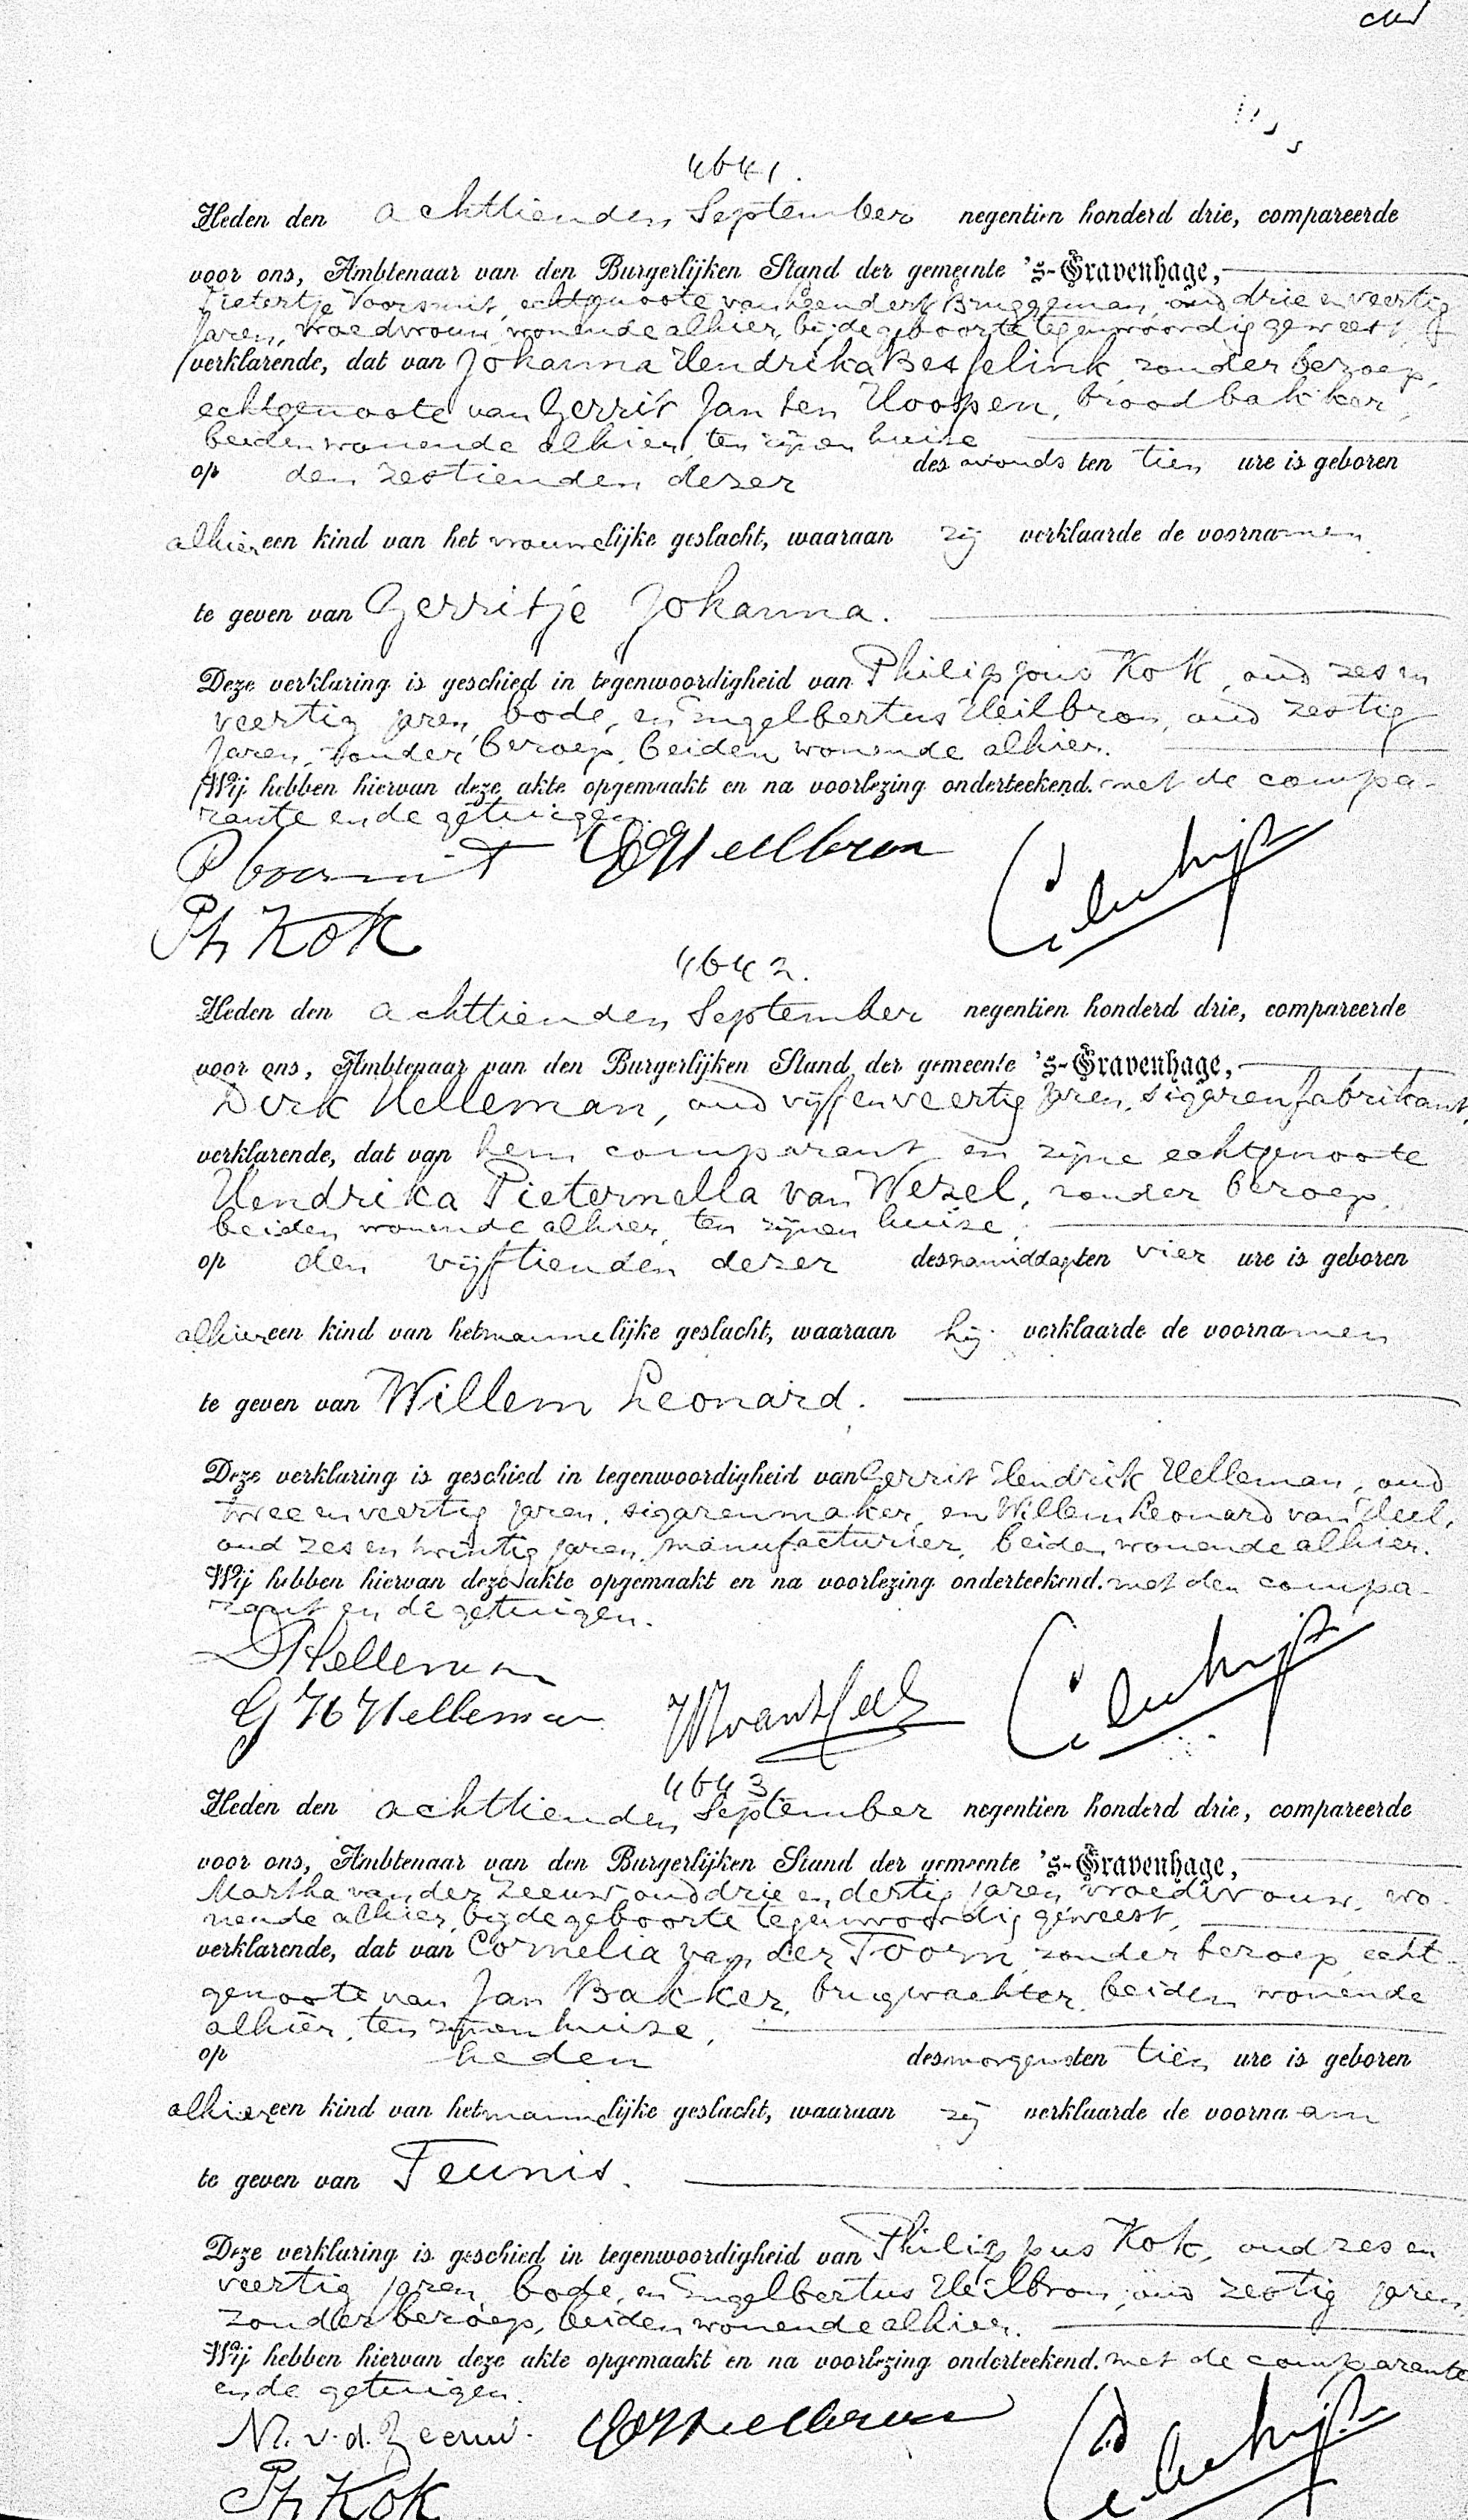 4641.
Heden den achttienden September negentien honderd drie, compareerde
voor ons, Ambtenaar van den Burgerlijken Stand der gemeente 's-Gravenhage,
Pietertje Voorsmit, echtgenoote van Leendert Bruggeman, oud drie en veertig
jaren, vroedvrouw, wonende alhier, bij de geboorte tegenwoordig geweest,
verklarende, dat van Johanna Hendrika Besselink, zonder beroep,
echtgenoote van Gerrit Jan ten Hoopen, broodbakker,
beiden wonende alhier, ten zijnen huize
op den zestienden dezer des avonds ten tien ure is geboren
alhier een kind van het vrouwelijke geslacht, waaraan zij verklaarde de voornamen
te geven van Gerritje Johanna.
Deze verklaring is geschied in tegenwoordigheid van Philippus Kok, oud zes en
veertig jaren, bode, en Engelbertus Heilbron, oud zestig
jaren, zonder beroep, beiden wonende alhier.
Wij hebben hiervan deze akte opgemaakt en na voorlezing onderteekend. met de compa-
rante en de getuigen.
P Voorsmit Heilbron
Ph Kok
4642.
Heden den achttienden September negentien honderd drie, compareerde
voor ons, Ambtenaar van den Burgerlijken Stand der gemeente 's-Gravenhage,
Dirk Helleman, oud vijf en veertig jaren, sigarenfabrikant,
verklarende, dat van hem comparant en zijne echtgenoote
Hendrika Pieternella van Wezel, zonder beroep,
beiden wonende alhier, ten zijnen huize,
op den vijftienden dezer des namiddags ten vier ure is geboren
alhier een kind van het mannelijke geslacht, waaraan hij verklaarde de voornamen
te geven van Willem Leonard.
Deze verklaring is geschied in tegenwoordigheid van Gerrit Hendrik Helleman, oud
twee en veertig jaren, sigarenmaker, en Willem Leonard van Heel,
oud zes en twintig jaren, manufacturier, beiden wonende alhier.
Wij hebben hiervan deze akte opgemaakt en na voorlezing onderteekend. met den compa-
rant en de getuigen.
D Helleman
G H Helleman WL van Heel
4643
Heden den achttienden September negentien honderd drie, compareerde
voor ons, Ambtenaar van den Burgerlijken Stand der gemeente 's-Gravenhage,
Martha van der Zeeuw, oud drie en dertig jaren, vroedvrouw, wo-
nende alhier, bij de geboorte tegenwoordig geweest,
verklarende, dat van Cornelia van der Toorn, zonder beroep, echt-
genoote van Jan Bakker, brugwachter, beiden wonende
alhier, ten zijnen huize,
op heden des morgens ten tien ure is geboren
alhier een kind van het mannelijke geslacht, waaraan zij verklaarde de voornaam
te geven van Teunis.
Deze verklaring is geschied in tegenwoordigheid van Philippus Kok, oud zes en
veertig jaren, bode, en Engelbertus Heilbron, oud zestig jaren,
zonder beroep, beiden wonende alhier.
Wij hebben hiervan deze akte opgemaakt en na voorlezing onderteekend. met de comparante
en de getuigen.
M. v. d. Zeeuw. Heilbron
Ph Kok